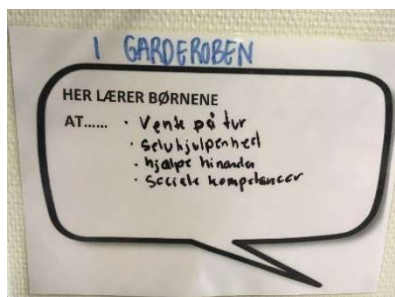 I GARDEROBEN
HER LÆRER BØRNENE
AT...... · Vente på tur
· selvhjulpenhed
· hjælpe hinanden
· sociale kompetancer